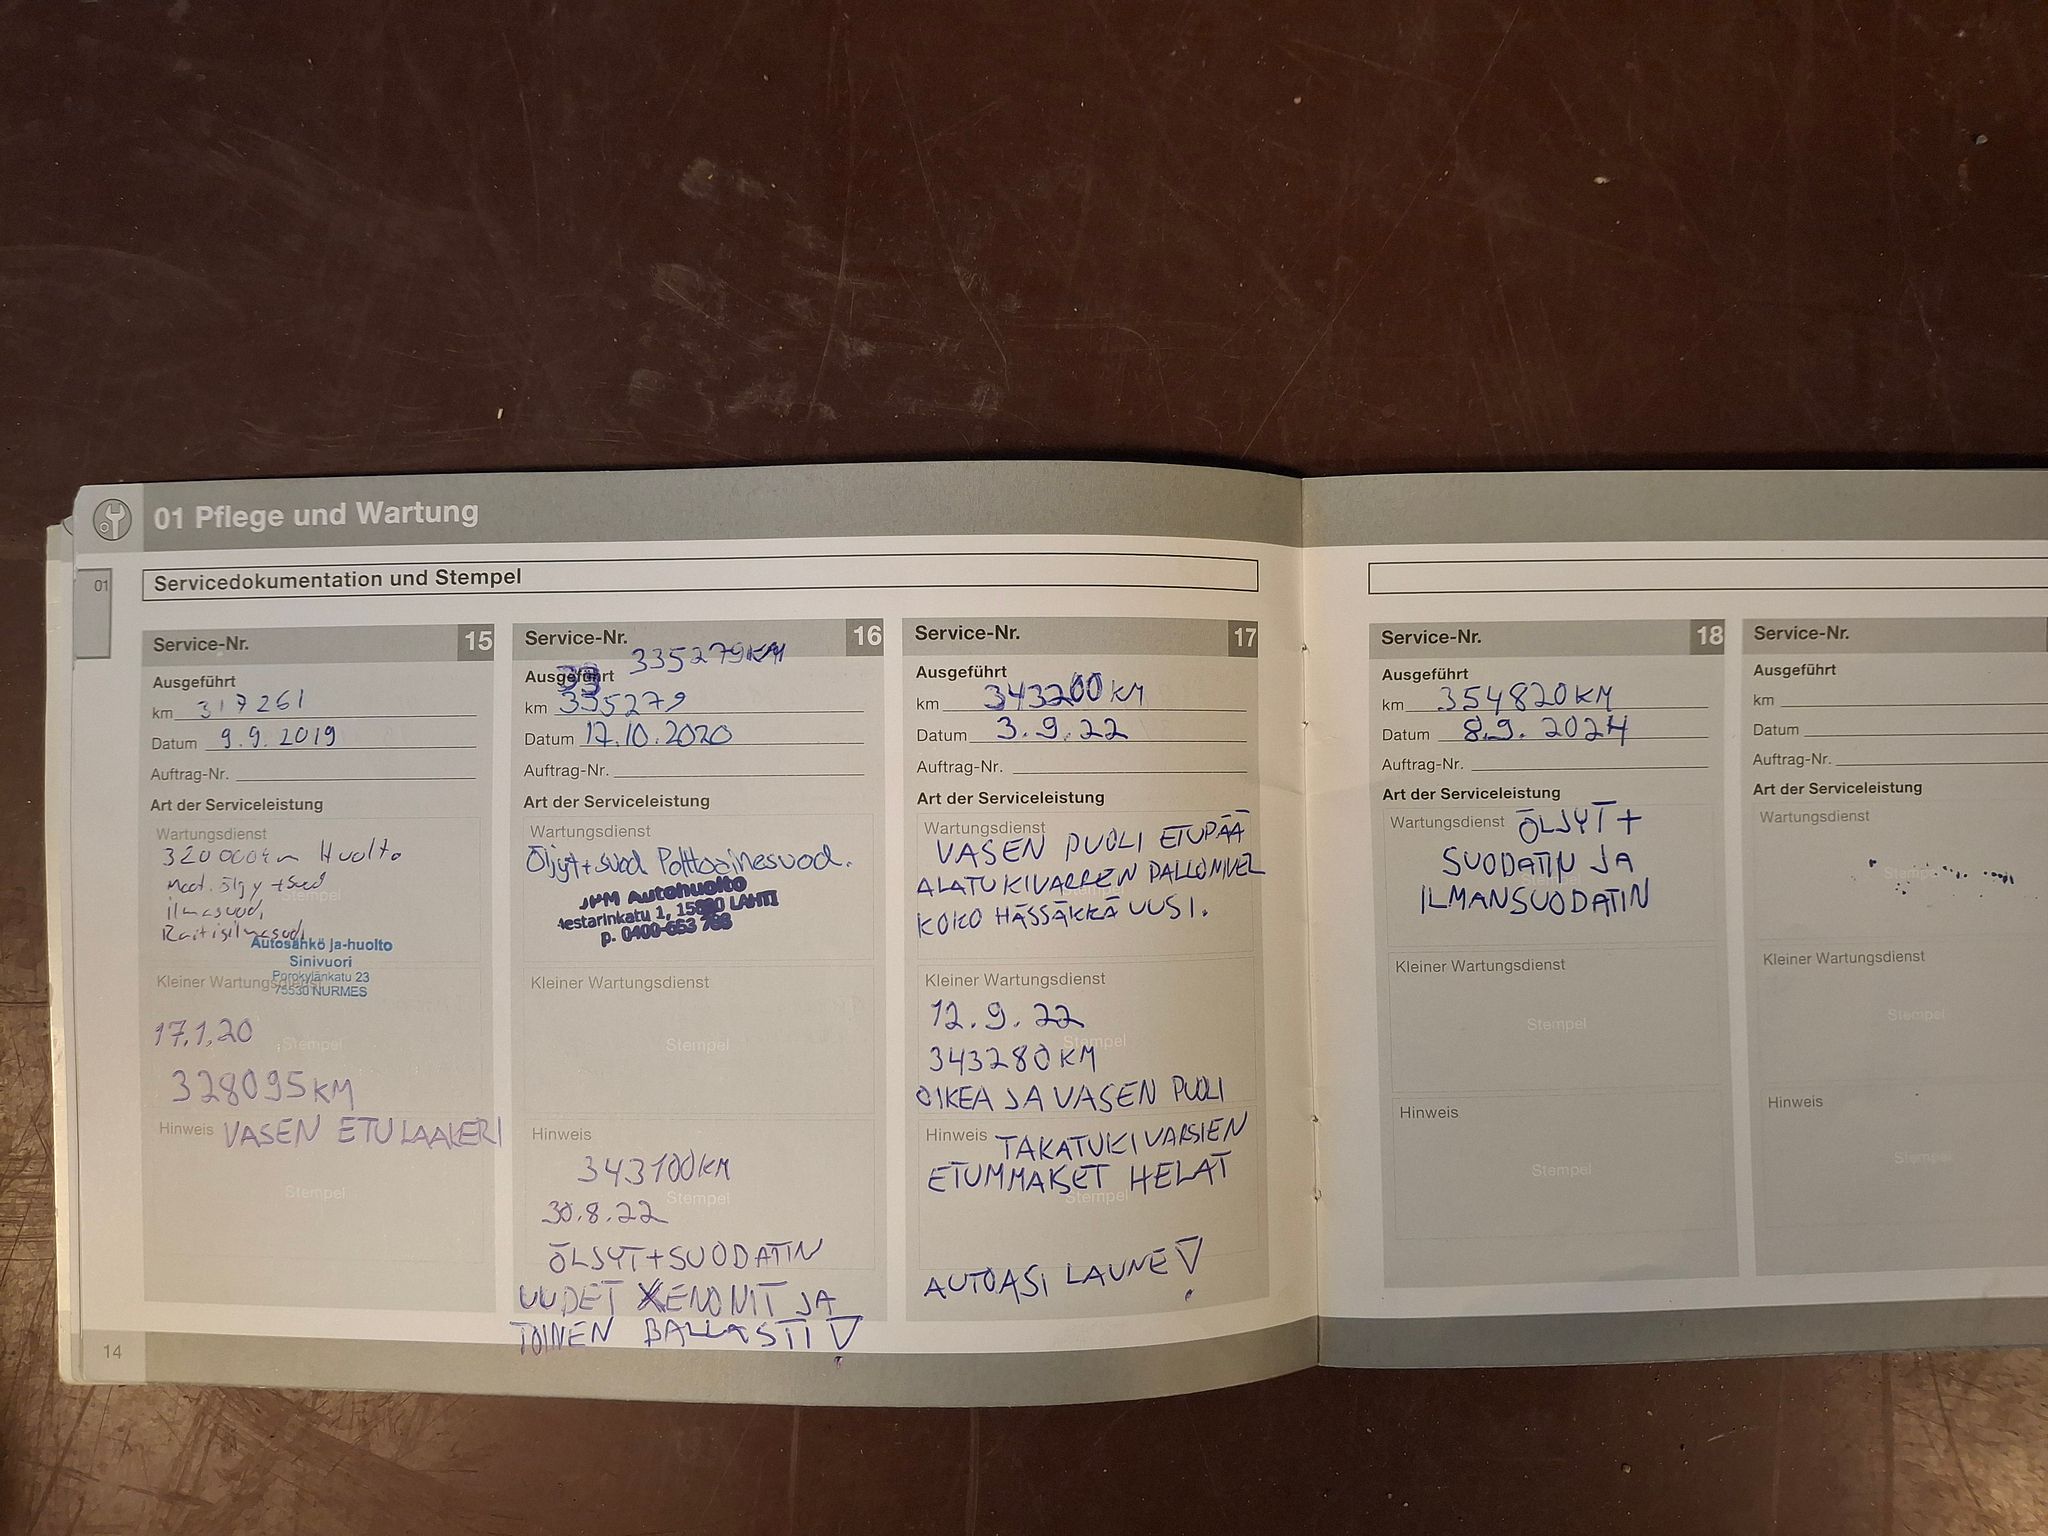 01 Pflege und Wartung
01
Servicedokumentation und Stempel
Service-Nr. 15
Ausgeführt
km 317261
Datum 9.9.2019
Auftrag-Nr.
Art der Serviceleistung
Wartungsdienst
320 000km Huolto
moot. öljy + suod
Stempel
ilmasuod,
Raitisilmasuod
Autosähkö ja-huolto
Sinivuori
Porokylänkatu 23
75530 NURMES
Kleiner Wartungsdienst
17.1.20
Stempel
328095 KM
Hinweis VASEN ETULAAKERI
Stempel
14
Service-Nr. 16
335279KM
Ausgeführt
km 335279
Datum 17.10.2020
Auftrag-Nr.
Art der Serviceleistung
Wartungsdienst
Öljyt+suod Polttoainesuod.
JPM Autohuolto
LAHTI
Kleiner Wartungsdienst
Stempel
Hinweis
343100KM
Stempel
30.8.22
ÖLJYT+SUODATIN
UUDET XENONIT JA
TOINEN BALLASTI!
Service-Nr. 17
Ausgeführt
km 343200 KM
Datum 3.9.22
Auftrag-Nr.
Art der Serviceleistung
Wartungsdienst
VASEN PUOLI ETUPÄÄ
ALATUKIVARREN PALLONIVEL
KOKO HÄSSÄKKÄ UUSI.
Kleiner Wartungsdienst
12.9.22
Stempel
343280 KM
OIKEA JA VASEN PUOLI
Hinweis TAKATUKIVARSIEN
ETUMMAISET HELAT
Stempel
AUTOASI LAUNE!
Service-Nr. 18
Ausgeführt
km 354820 KM
Datum 8.9.2024
Auftrag-Nr.
Art der Serviceleistung
Wartungsdienst ÖLJYT +
SUODATIN JA
Stempel
ILMANSUODATIN
Kleiner Wartungsdienst
Stempel
Hinweis
Stempel
Service-Nr.
Ausgeführt
km
Datum
Auftrag-Nr.
Art der Serviceleistung
Wartungsdienst
Stempel
Kleiner Wartungsdienst
Stempel
Hinweis
Stempel